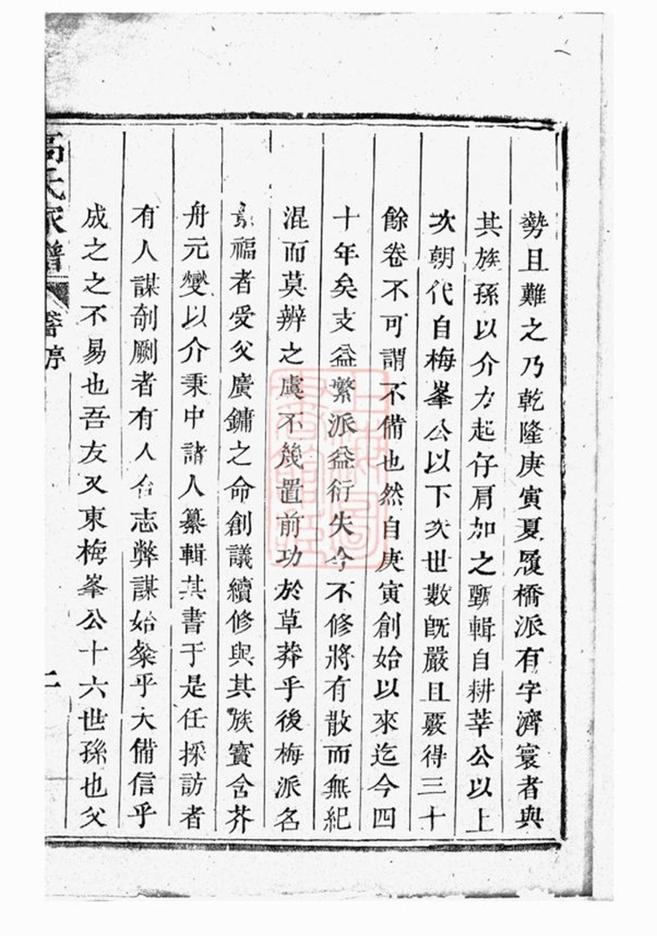 勢且難之乃乾隆庚寅夏履橋派有字濟寰者與
其族孫以介力起仔肩加之甄輯自耕莘公以上
次朝代自梅峯公以下次世數旣嚴且覈得三十
餘卷不可謂不備也然自庚寅創始以來迄今四
十年矣支益繁派益衍失今不修將有散而無紀
混而莫辨之虞不幾置前功於草莽乎後梅派名
福者受父廣鏞之命創議續修與其族寶含芥
舟元燮以介秉中諸人纂輯其書于是任採訪者
有人謀剞劂者有人合志弊謀始粲乎大備信乎
成之之不易也吾友又東梅峯公十六世孫也父
高氏家譜